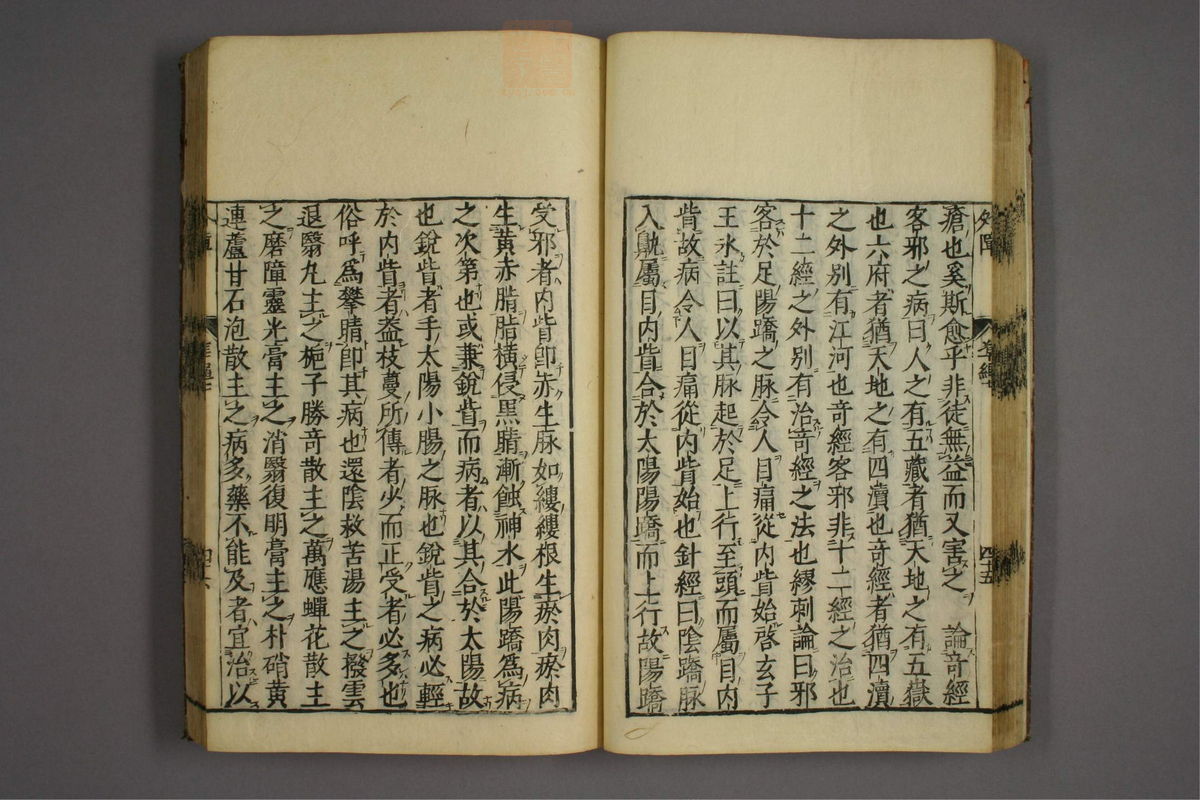 瘡也奚斯愈乎非徒無益而又害之　論竒經
客邪之病曰人之有五藏者猶天地之有五嶽
也六府者猶天地之有四瀆也竒經者猶四瀆
之外別有江河也竒經客邪非十二經之治也
十二經之外別有治竒經之法也繆刺論曰邪
客於足陽蹻之脉令人目痛從内眥始啓玄子
王氷註曰以其脉起於足上行至頭而屬目内
眥故病令人目痛從内眥始也針經曰陰蹻脉
入鼽屬目内眥合於太陽陽蹻而上行故陽蹻
四十五
受邪者内眥即赤生脉如縷縷根生瘀肉瘀肉
生黄赤脂脂横侵黒睛漸蝕神水此陽蹻爲病
之次第也或兼鋭眥而病者以其合於太陽故
也鋭眥者手太陽小腸之脉也鋭眥之病必輕
於内眥者盖枝蔓所傳者少而正受者必多也
俗呼爲攀睛即其病也還陰救苦湯主之撥雲
退翳丸主之梔子勝竒散主之萬應蟬花散主
之磨障靈光膏主之消翳復明膏主之朴硝黄
連蘆甘石泡散主之病多藥不能及者宜治以